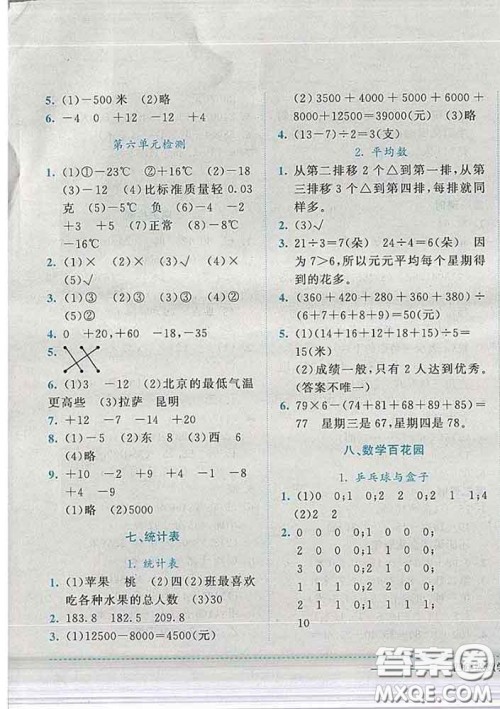 5. (1)－500 米　(2)略
6. －4　0　＋12　－12　＋4
第六单元检测
1. (1)①－23℃　②＋16℃　(2)－18
(3)－12　(4)比标准质量轻 0.03
克　(5)－5℃　负　(6)－4　－2
＋3　＋5　(7)正常　(8)－16℃
－8℃
2. (1)×　(2)×　(3)√　(4)×
(5)√
3. (1)③　(2)③　(3)②　(4)②
(5)②
4. 0　＋20,＋60　－18,－35
5.
6. (1)3　－12　(2)北京的最低气温
更高些　(3)拉萨　昆明
7. ＋12　－7　－14　＋20
8. (1)略　(2)东　8　(3)西　6
(4)略
9. ＋12　＋9　－4　＋1　－9
(1)略　(2)5000
七、统计表
1. 统计表
1. (1)苹果　桃　(2)四(2)班最喜欢
吃各种水果的总人数　(3)30
2. 183.8　182.5　209.8
3. (1)12500－8000＝4500(元)
(2)3500＋4000＋5000＋6000＋
8000＋12500＝39000(元)　(3)略
4. (13－7)÷2＝3(支)
2. 平均数
1. 从第二排移 2 个△到第一排，从第
三排移 3 个△到第四排，每排就同
样多。
2. (3)√
3. 21÷3＝7(朵)　24÷4＝6(朵)　因
为 7＞6，所以元元平均每个星期得
到的花多。
4. (360＋420＋380＋350＋640)÷
(6＋7＋6＋8＋16)＝50(元)
5. (1)(14＋16＋12＋18＋15)÷5＝
15(米)
(2)成绩一般，只有 2 人达到优秀。
(答案不唯一)
6. 79×6－(74＋87＋68＋83＋85)＝
77　星期三是 67，星期四是 78。
八、数学百花园
1. 乒乓球与盒子
1. (1)0　0;0　1;1　0;2　0;2　1
(2)2　2
2. 0　0　0　0;1　0　0　0;
1　1　0　0;1　1　1　0;
2　0　0　0;2　1　0　0;
2　1　1　0;2　2　0　0;
3　0　0　0;3　1　0　0;
1　1　1　1;2　1　1　1;
2　2　1　0;3　1　1　0;
10
答案卷
MXQE.COM